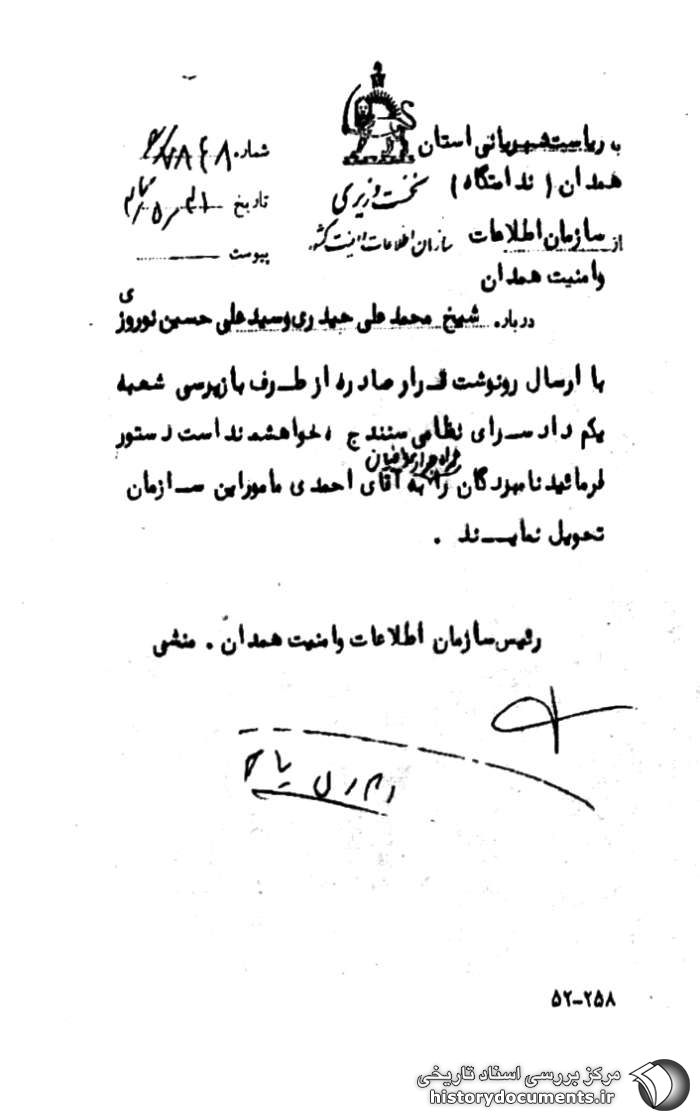 به ریاست شهربانی استان
همدان ( ندامتگاه )
نخست وزیری
از سازمان اطلاعات
سازمان اطلاعات و امنیت کشور
و امنیت همدان
شماره
تاریخ
پیوست
درباره شیخ محمد علی حیدری و سید علی حسین نوروزی
با ارسال رونوشت قرار صادره از طرف بازپرسی شعبه
یکم دادسرای نظامی سنندج ، خواهشمند است دستور
فرمائید نامبردگان را به آقای احمدی مامور این سازمان
تحویل نمایند .
رئیس سازمان اطلاعات و امنیت همدان . منشی
۵۲-۲۵۸
مرکز بررسی اسناد تاریخی
historydocuments.ir